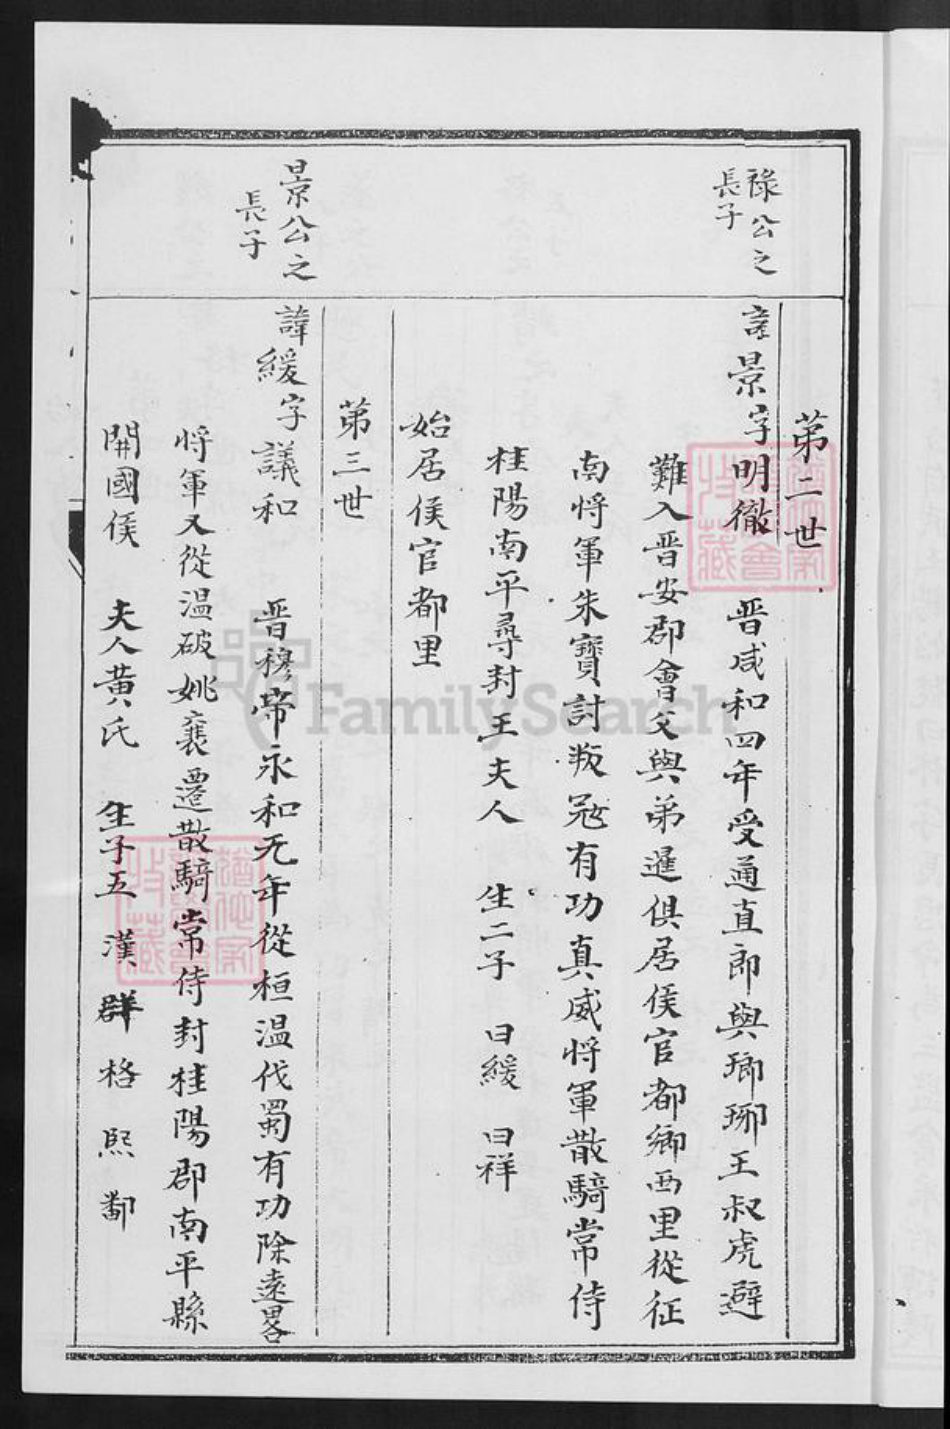 第二世
祿公之
長子
諱景字明徹 晋咸和四年受通直郎與瑯琊王叔虎避
難入晋安郡會父與弟暹俱居侯官都鄉西里從征
南將軍朱寶討叛冦有功真威將軍散騎常侍
桂陽南平尋封王夫人 生二子 曰緩 曰祥
始居侯官都里
第三世
景公之
長子
諱緩字議和 晋穆帝永和元年從桓温伐蜀有功除遠畧
將軍又從温破姚襄遷散騎常侍封桂陽郡南平縣
開國侯 夫人黄氏 生子五 漢 群 格 熙 鄱
FamilySearch